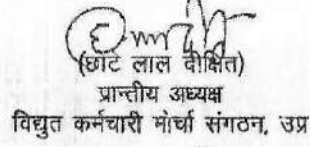 (छोटे लाल दीक्षित)
प्रान्तीय अध्यक्ष
विद्युत कर्मचारी मोर्चा संगठन, उप्र